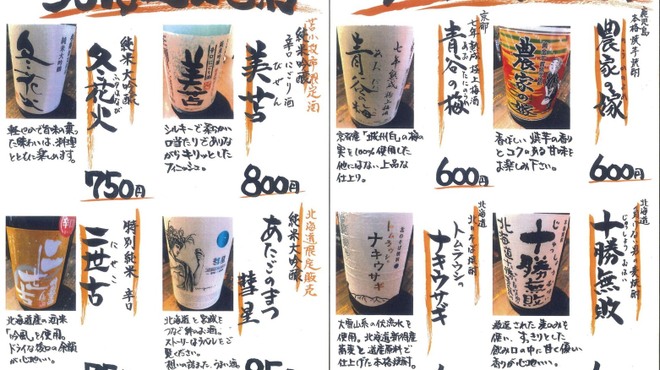 純米大吟醸
冬花火
ふゆはなび
軽やかで旨味の乗った味わいは、料理とともに楽しめます。
750円
苫小牧市限定酒
純米吟醸
辛口にごり酒
美苫
びせん
シルキーで柔らかい
口当たりでありな
がらキリッとした
フィニッシュ。
800円
特別純米 辛口
二世古
にせこ
北海道産の酒米
「吟風」を使用。
ドライな後口の余韻
が心地いい。
北海道限定販売
純米大吟醸
あたごのまつ
彗星
北海道と宮城を
つなぐ絆のお酒。
ストーリーはラベルをご
覧ください。
京都
七年熟成極上梅酒
青谷の梅
あおだにのうめ
京都産「城州白」の梅の
実を100%使用した
他にはない上品な
仕上り。
600円
鹿児島
本格焼芋焼酎
農家の嫁
香ばしい焼芋の香り
とコクある甘味を
お楽しみ下さい。
600円
北海道
トムラウシの
ナキウサギ
大雪山系の伏流水を
使用。北海道新得産
蕎麦と道産原料で
仕上げた本格焼酎。
北海道
十勝無敗
厳選された麦のみを
使い、すっきりとした
飲み口の中に甘く優しい
香りが心地いい。